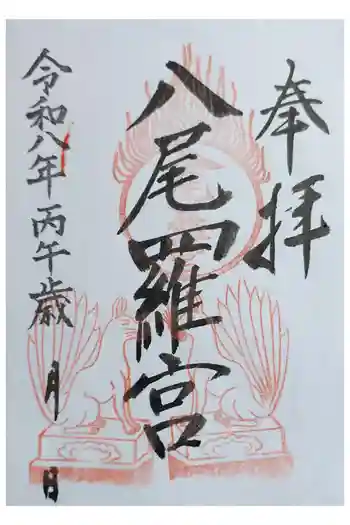 奉拝
八尾羅宮
令和八年丙午歳 月 日